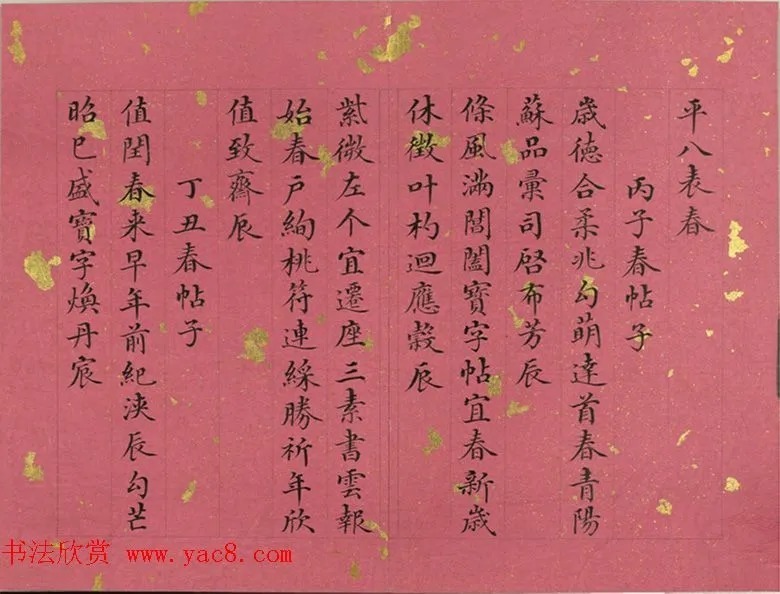 平八表春
丙子春帖子
歲德合柔兆勾萌達首春青陽
蘇品彙司啓布芳辰
條風滿閶闔寶字帖宜春新歲
休徵叶杓迴應穀辰
紫微左个宜遷座三素書雲報
始春戶絢桃符連綵勝祈年欣
值致齋辰
丁丑春帖子
值閏春来早年前紀浹辰勾芒
昭巳盛寶字煥丹宸
书法欣赏 www.yac8.com